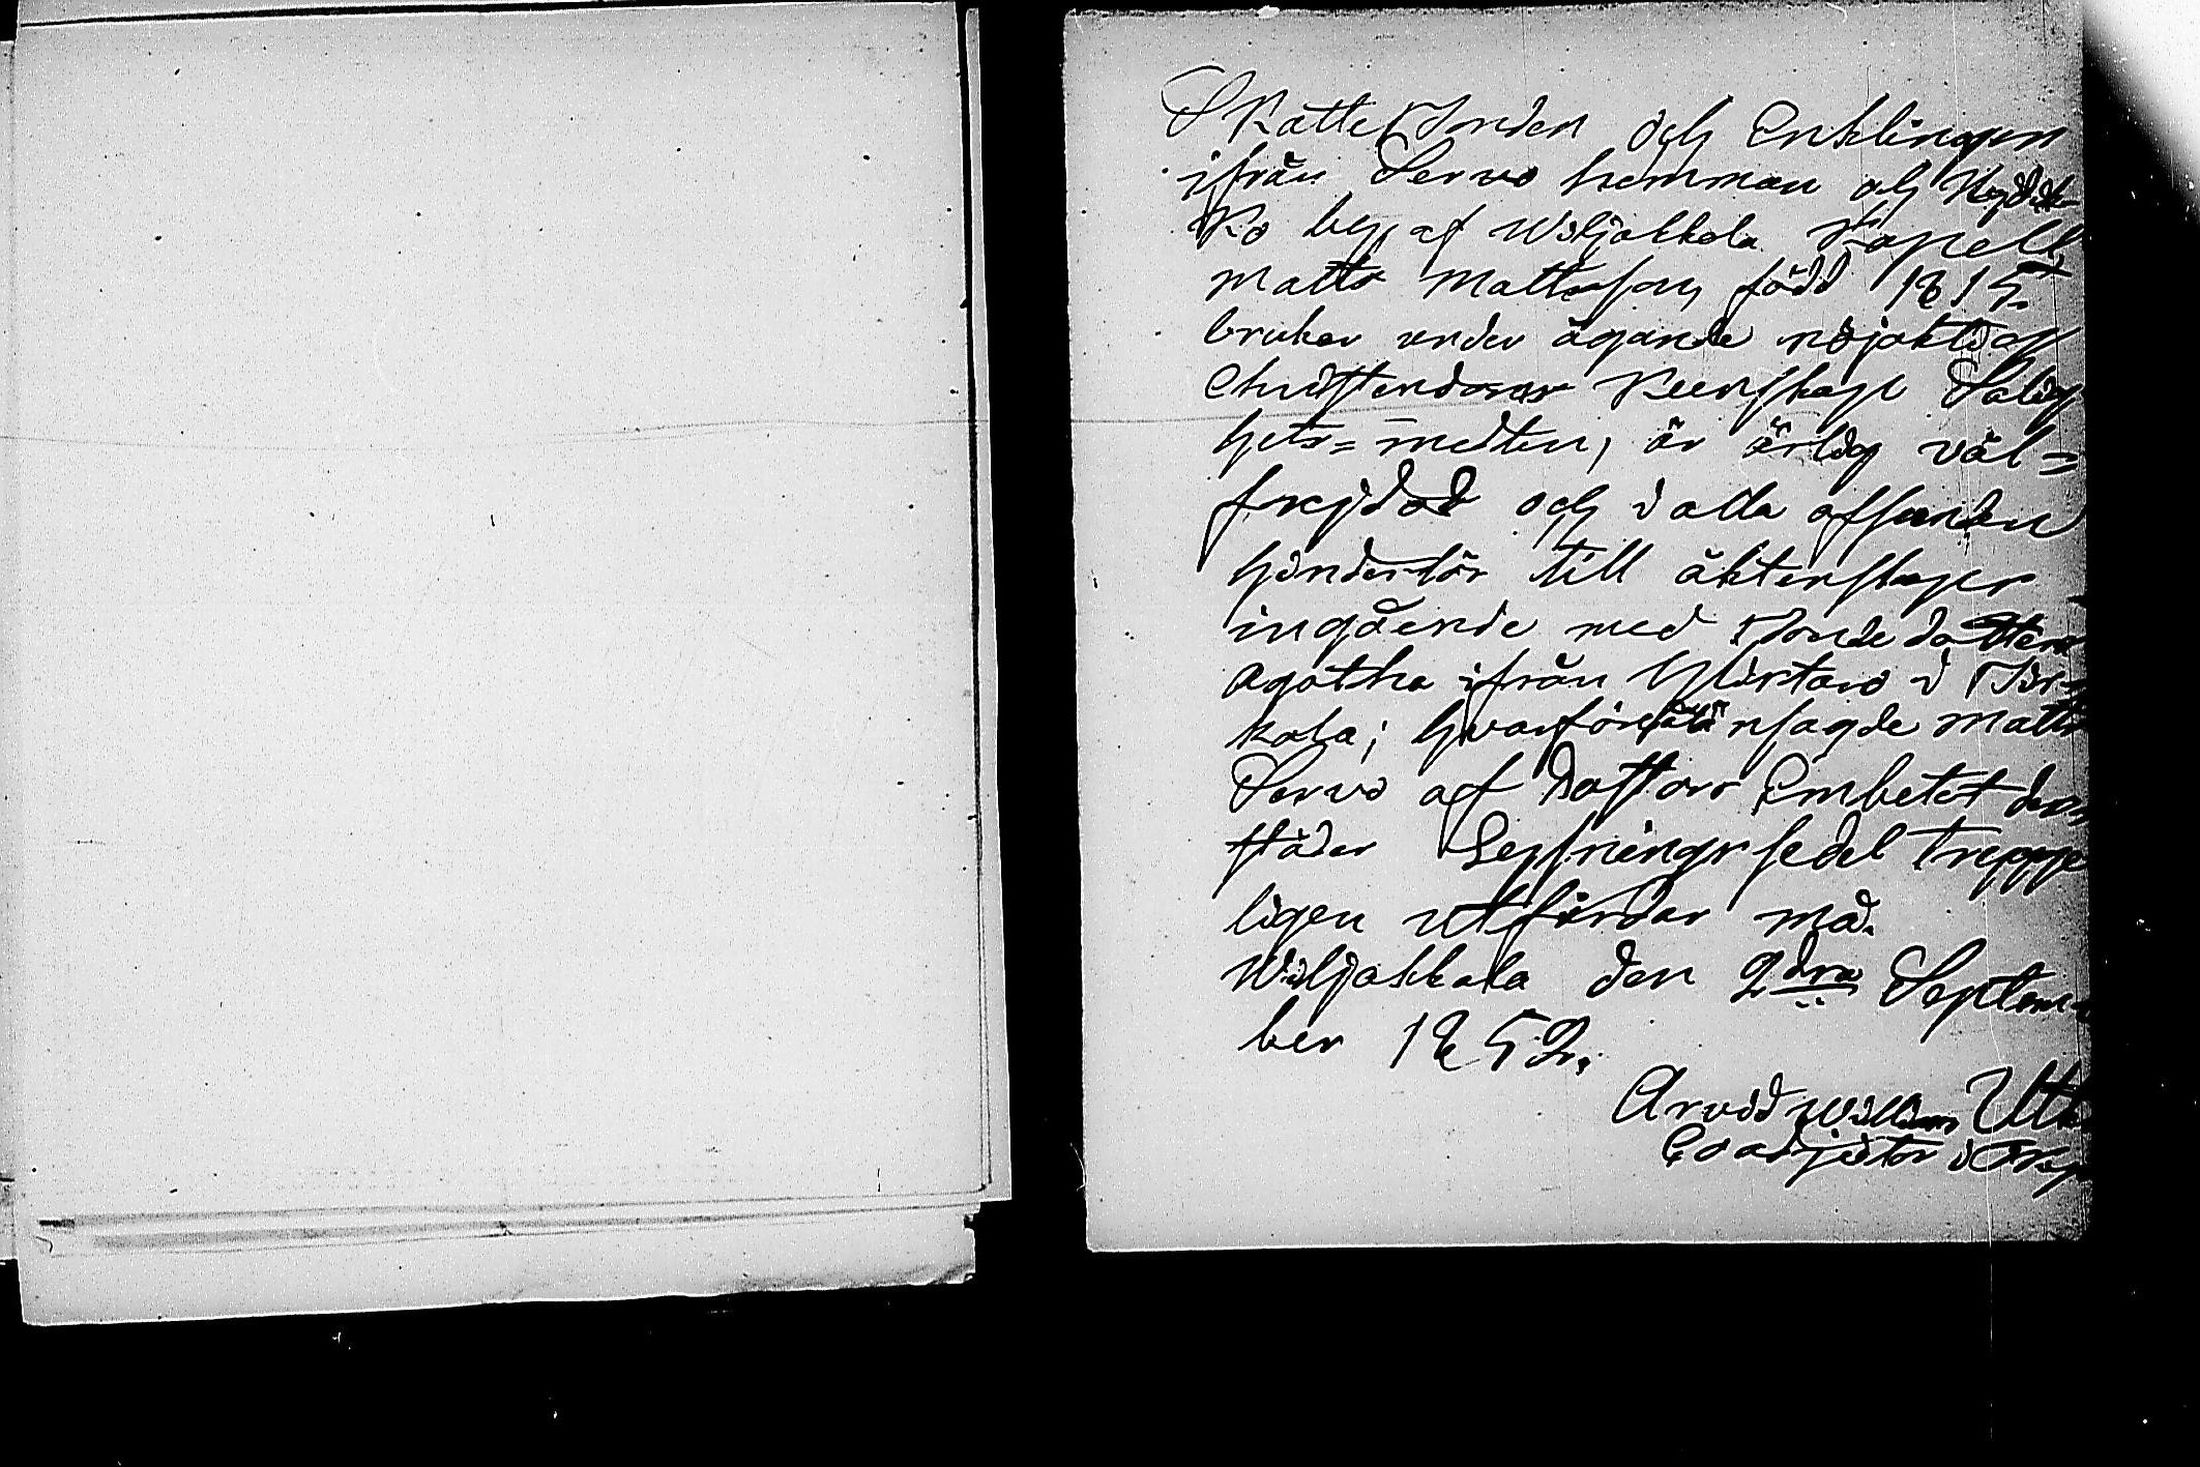 Skatte Bonden och Enklingen
ifrån Servo hemman och
ko by af Wiljakkala Kapell,
Matts Mattsson, född 1815.
bruker under ägande nöjaktig
Christendoms Kunskap Salig
hets=medlen, är ärlig väl=
frejdad och i alla afseenden
hinderlös till äktenskaps
ingående med Bonde dottern
Agatha ifrån i Kyr=
kola; hvarföre bemälde Matts
Servo af Pastors Embetet der=
städes Lysningssedel
ligen utfärdas må.
Wiljakkala den 2dra Septem=
ber 1852.
Arvid William
Coadjutor i